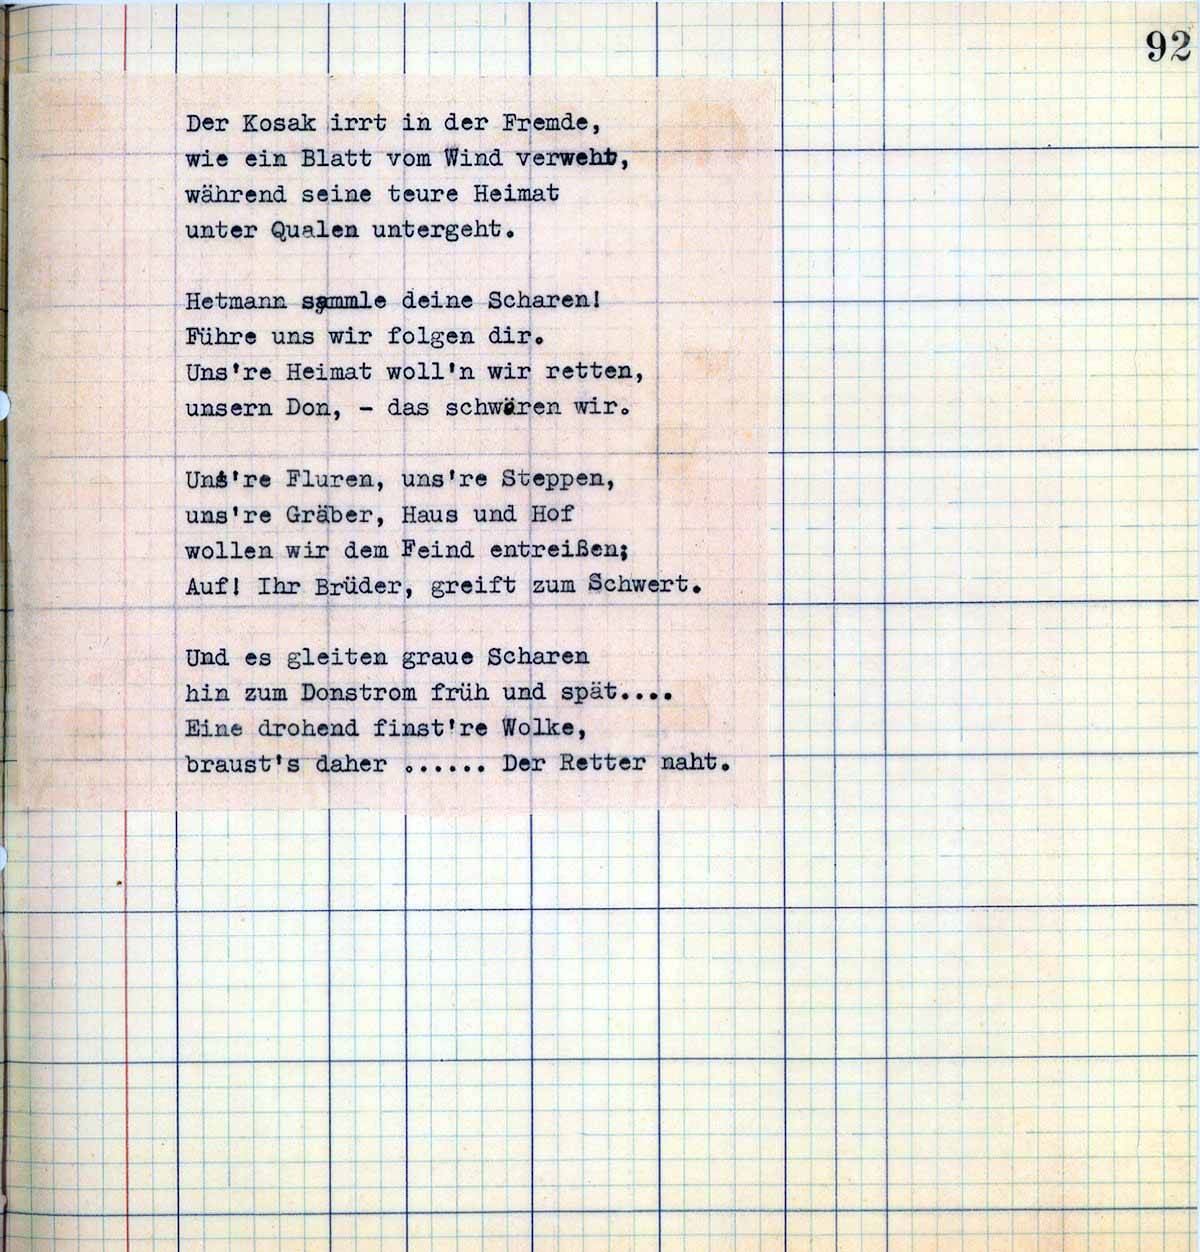 92
Der Kosak irrt in der Fremde,
wie ein Blatt vom Wind verweht,
während seine teure Heimat
unter Qualen untergeht.
Hetmann sammle deine Scharen!
Führe uns wir folgen dir.
Uns're Heimat woll'n wir retten,
unsern Don, - das schwören wir.
Uns're Fluren, uns're Steppen,
uns're Gräber, Haus und Hof
wollen wir dem Feind entreißen;
Auf! Ihr Brüder, greift zum Schwert.
Und es gleiten graue Scharen
hin zum Donstrom früh und spät....
Eine drohend finst're Wolke,
braust's daher ...... Der Retter naht.